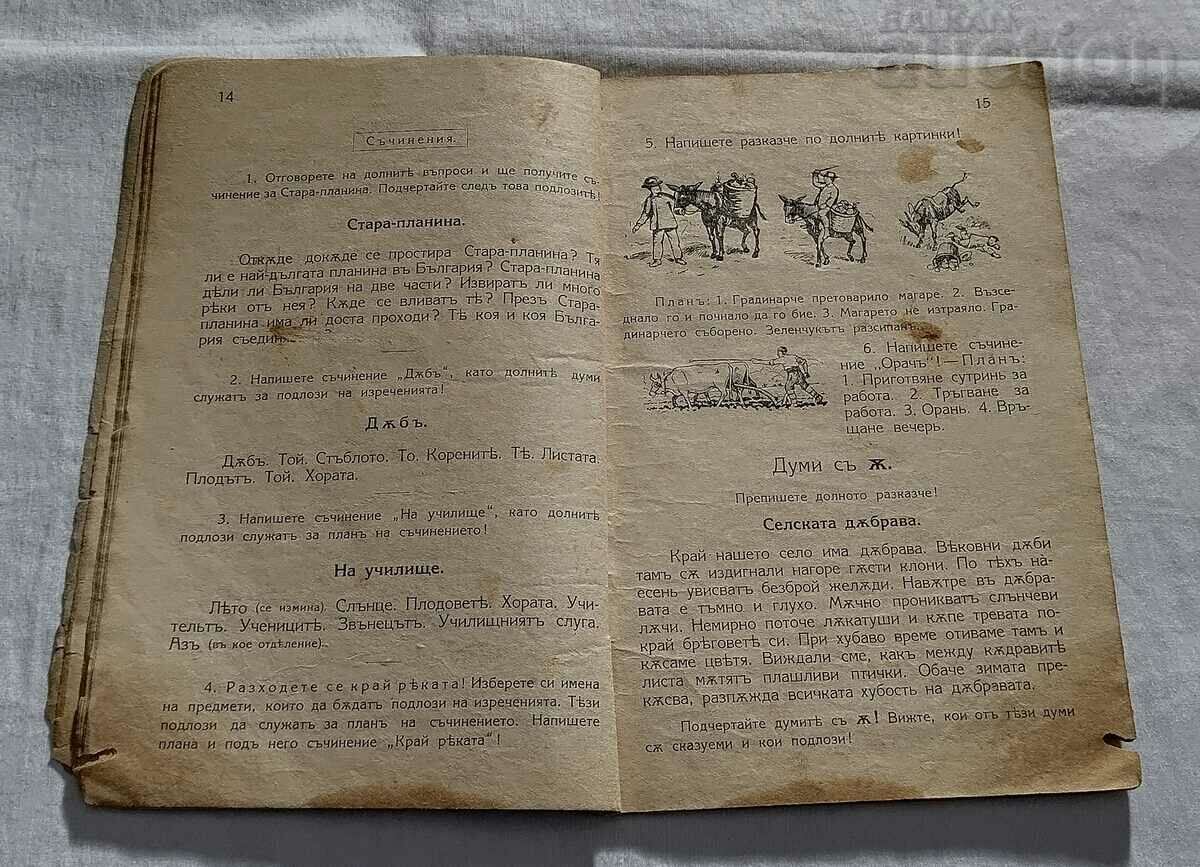 BALKAN
auction
14
Съчинения.
1. Отговорете на долнитѣ въпроси и ще получите съ-
чинение за Стара-планина. Подчертайте следъ това подлозитѣ!
Стара-планина.
Откѫде докѫде се простира Стара-планина? Тя
ли е най-дългата планина въ България? Стара-планина
дѣли ли България на две части? Извиратъ ли много
рѣки отъ нея? Кѫде се вливатъ тѣ? Презъ Стара-
планина има ли доста проходи? Тѣ коя и коя Бълга-
рия
2. Напишете съчинение „Дѫбъ“, като долнитѣ думи
служатъ за подлози на изреченията!
Дѫбъ.
Дѫбъ. Той. Стъблото. То. Коренитѣ. Тѣ. Листата.
Плодътъ. Той. Хората.
3. Напишете съчинение „На училище“, като долнитѣ
подлози служатъ за планъ на съчинението!
На училище.
Лѣто (се измина). Слънце. Плодоветѣ. Хората. Учи-
тельтъ. Ученицитѣ. Звънецътъ. Училищниятъ слуга.
Азъ (въ кое отдѣление).
4. Разходете се край рѣката! Изберете си имена
на предмети, които да бѫдатъ подлози на изреченията. Тѣзи
подлози да служатъ за планъ на съчинението. Напишете
плана и подъ него съчинение „Край рѣката“!
15
5. Напишете разказче по долнитѣ картинки!
Планъ: 1. Градинарче претоварило магаре. 2. Възсе-
днало го и почнало да го бие. 3. Магарето не изтраяло. Гра-
динарчето съборено. Зеленчукътъ разсипанъ.
6. Напишете съчине-
ние „Орачъ“! — Планъ:
1. Приготвяне сутринь за
работа. 2. Тръгване за
работа. 3. Орань. 4. Връ-
щане вечерь.
Думи съ Ѫ.
Препишете долното разказче!
Селската дѫбрава.
Край нашето село има дѫбрава. Вѣковни дѫби
тамъ сѫ издигнали нагоре гѫсти клони. По тѣхъ на-
есень увисватъ безброй желѫди. Навѫтре въ дѫбра-
вата е тъмно и глухо. Мѫчно проникватъ слънчеви
лѫчи. Немирно поточе лѫкатуши и кѫпе тревата по-
край брѣговетѣ си. При хубаво време отиваме тамъ и
кѫсаме цвѣтя. Виждали сме, какъ между кѫдравитѣ
листа мѫтятъ плашливи птички. Обаче зимата пре-
кѫсва, разпѫжда всичката хубость на дѫбравата.
Подчертайте думитѣ съ ѫ! Вижте, кои отъ тѣзи думи
сѫ сказуеми и кои подлози!